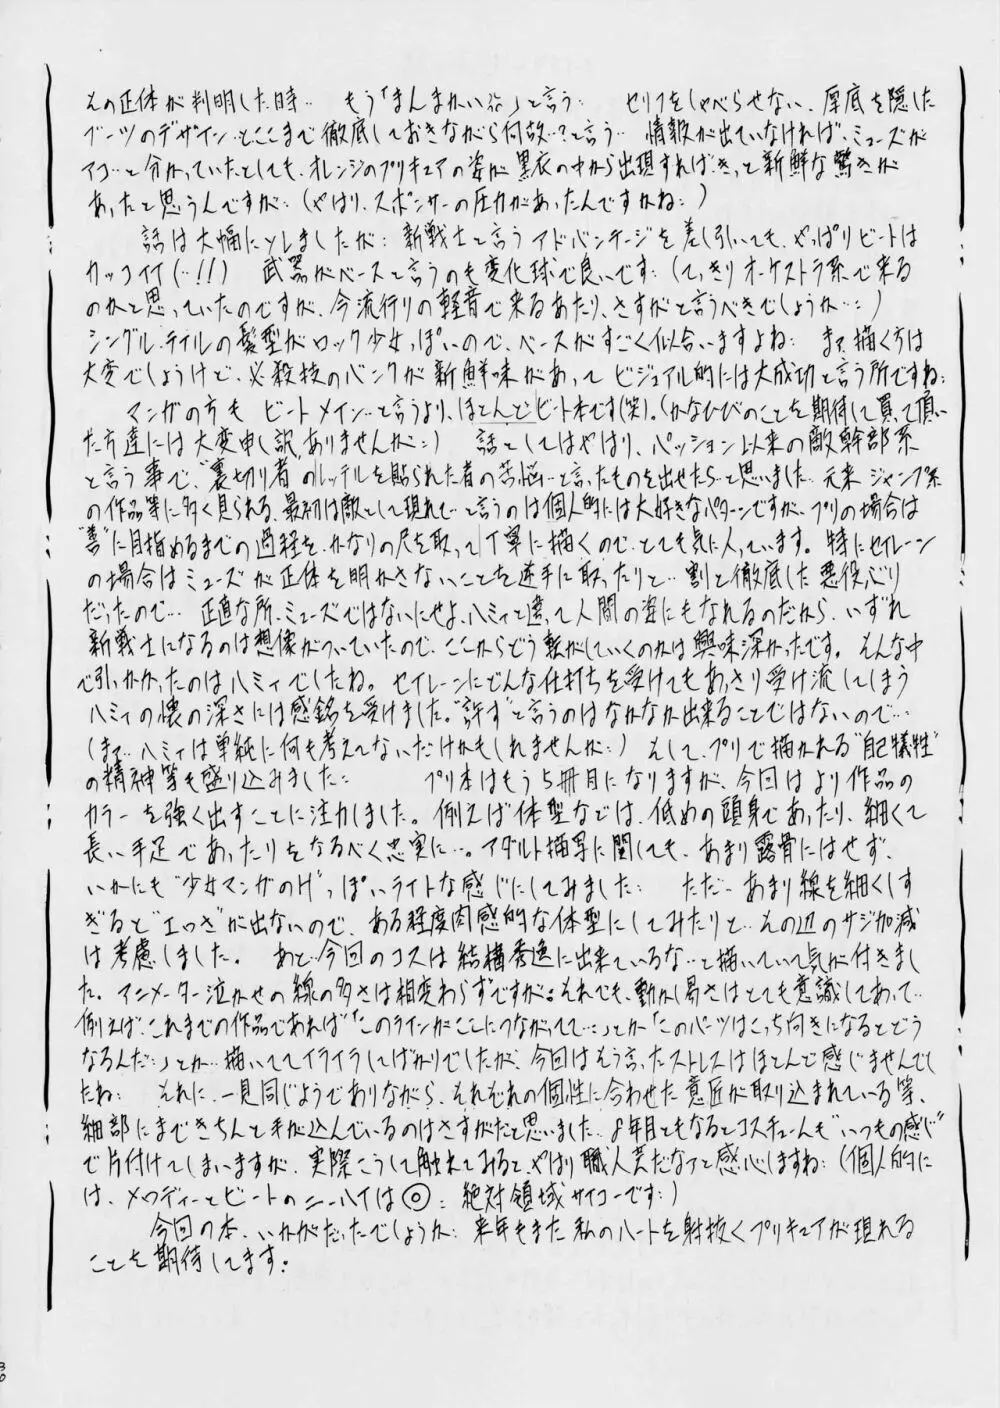 その正体が判明した時… もう「まんまかい!!」と言う… セリフをしゃべらせない、厚底を隠した
ブーツのデザイン…とここまで徹底しておきながら何故…?と言う… 情報が出ていなければ、ミューズが
アコ…と分かっていたとしても、オレンジのプリキュアの姿が黒衣の中から出現すれば、きっと新鮮な驚きが
あったと思うんですが…(やはり、スポンサーの圧力があったんですかね…)
話は大幅にソレましたが…新戦士と言うアドバンテージを差し引いても、やっぱりビートは
カッコイイ(…!!) 武器がベースと言うのも変化球で良いです…(てっきりオーケストラ系で来る
のかと思っていたのですが、今流行りの軽音で来るあたり、さすがと言うべきでしょうか…)
シングルテイルの髪型がロック少女っぽいので、ベースがすごく似合いますよね… まぁ、描く方は
大変でしょうけど、必殺技のバンクが新鮮味があってビジュアル的には大成功と言う所ですね…
マンガの方もビートメイン…と言うより、ほとんどビート本です(笑)。(かなひびのことを期待して買って頂い
た方達には大変申し訳ありませんが…) 話としてはやはり、パッション以来の敵幹部系
と言う事で、"裏切り者のレッテルを貼られた者の苦悩…と言ったものを出せたら…と思いました… 元来ジャンプ系
の作品等に多く見られる、最初は敵として現れて…と言うのは個人的には大好きなパターンですが、プリの場合は
"善"に目指めるまでの過程を、かなりの尺を取って丁寧に描くので、とても気に入っています。特にセイレーン
の場合はミューズが正体を明かさないことを逆手に取ったりと…割と徹底した悪役ぶり
だったので… 正直な所、ミューズではないにせよ、ハミィと違って人間の姿にもなれるのだから、いずれ
新戦士になるのは想像がついていたので、ここからどう転がしていくのかは興味深かったです。そんな中
で引っかかったのはハミィでしたね。セイレーンにどんな仕打ちを受けてもあっさり受け流してしまう
ハミィの懐の深さには感銘を受けました。"許す"と言うのはなかなか出来ることではないので…
(まぁ…ハミィは単純に何も考えてないだけかもしれませんが…) そして、プリで描かれる"自己犠牲"
の精神等も盛り込みました… プリ本はもう5冊目になりますが、今回はより作品の
カラーを強く出すことに注力しました。例えば体型などは、低めの頭身であったり、細くて
長い手足であったりをなるべく忠実に…。アダルト描写に関しても、あまり露骨にはせず、
いかにも"少女マンガのH"っぽいライトな感じにしてみました… ただ…あまり線を細くしす
ぎると"エッさ"が出ないので、ある程度肉感的な体型にしてみたりと…その辺のサジ加減
は考慮しました。 あと…今回のコスは結構秀逸に出来ているな…と描いていて気が付きまし
た。アニメーター泣かせの線の多さは相変わらずですが…それでも、動かし易さはとても意識してあって…
例えば、これまでの作品であれば「このラインがここにつながってて…」とか「このパーツはこっち向きになるとどう
なるんだ…」とか…描いててイライラしてばかりでしたが、今回はそう言ったストレスはほとんど感じませんでし
たね… それに、一見同じようでありながら、それぞれの個性に合わせた意匠が取り込まれている等、
細部にまできちんと手が込んでいるのはさすがだと思いました… 8年目ともなるとコスチュームも"いつもの感じ"
で片付けてしまいますが、実際こうして触れてみると、やはり職人芸だなァと感心しますね…(個人的に
は、メロディーとビートのニーハイは◎…絶対領域サイコーです…)
今回の本、いかがだったでしょうか… 来年もまた私のハートを射抜くプリキュアが現れる
ことを期待してます。